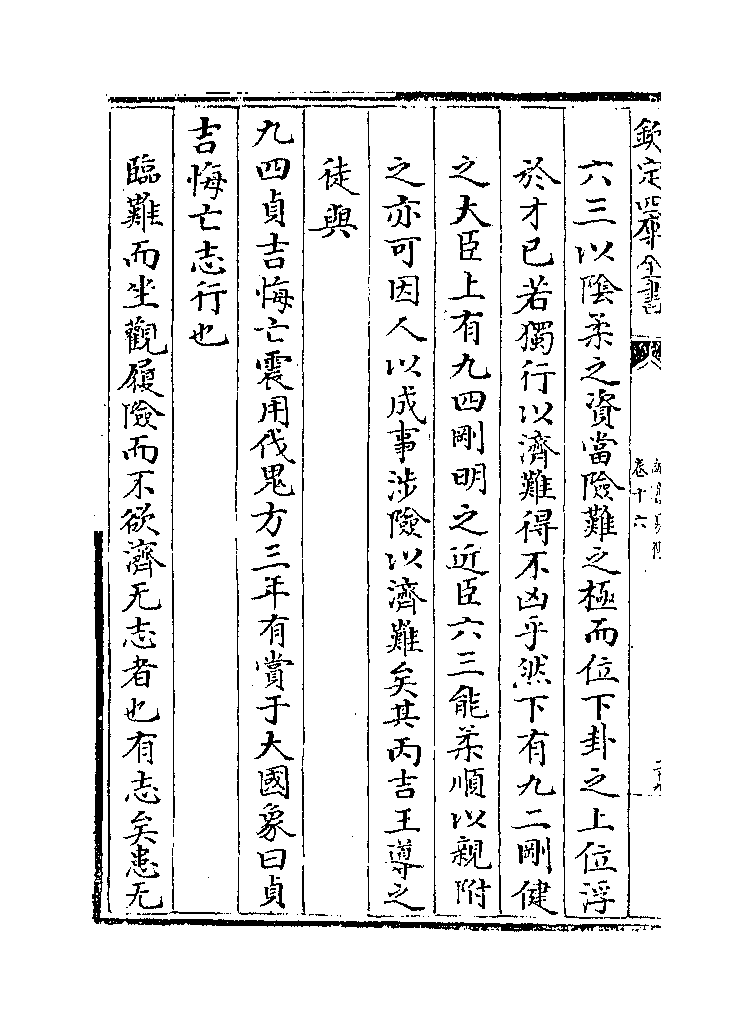 欽定四庫全書
卷十六
六三以陰柔之資當險難之極而位下卦之上位浮
於才已若獨行以濟難得不凶乎然下有九二剛健
之大臣上有九四剛明之近臣六三能柔順以親附
之亦可因人以成事涉險以濟難矣其丙吉王導之
徒與
九四貞吉悔亡震用伐鬼方三年有賞于大國象曰貞
吉悔亡志行也
臨難而坐觀履險而不欲濟无志者也有志矣患无